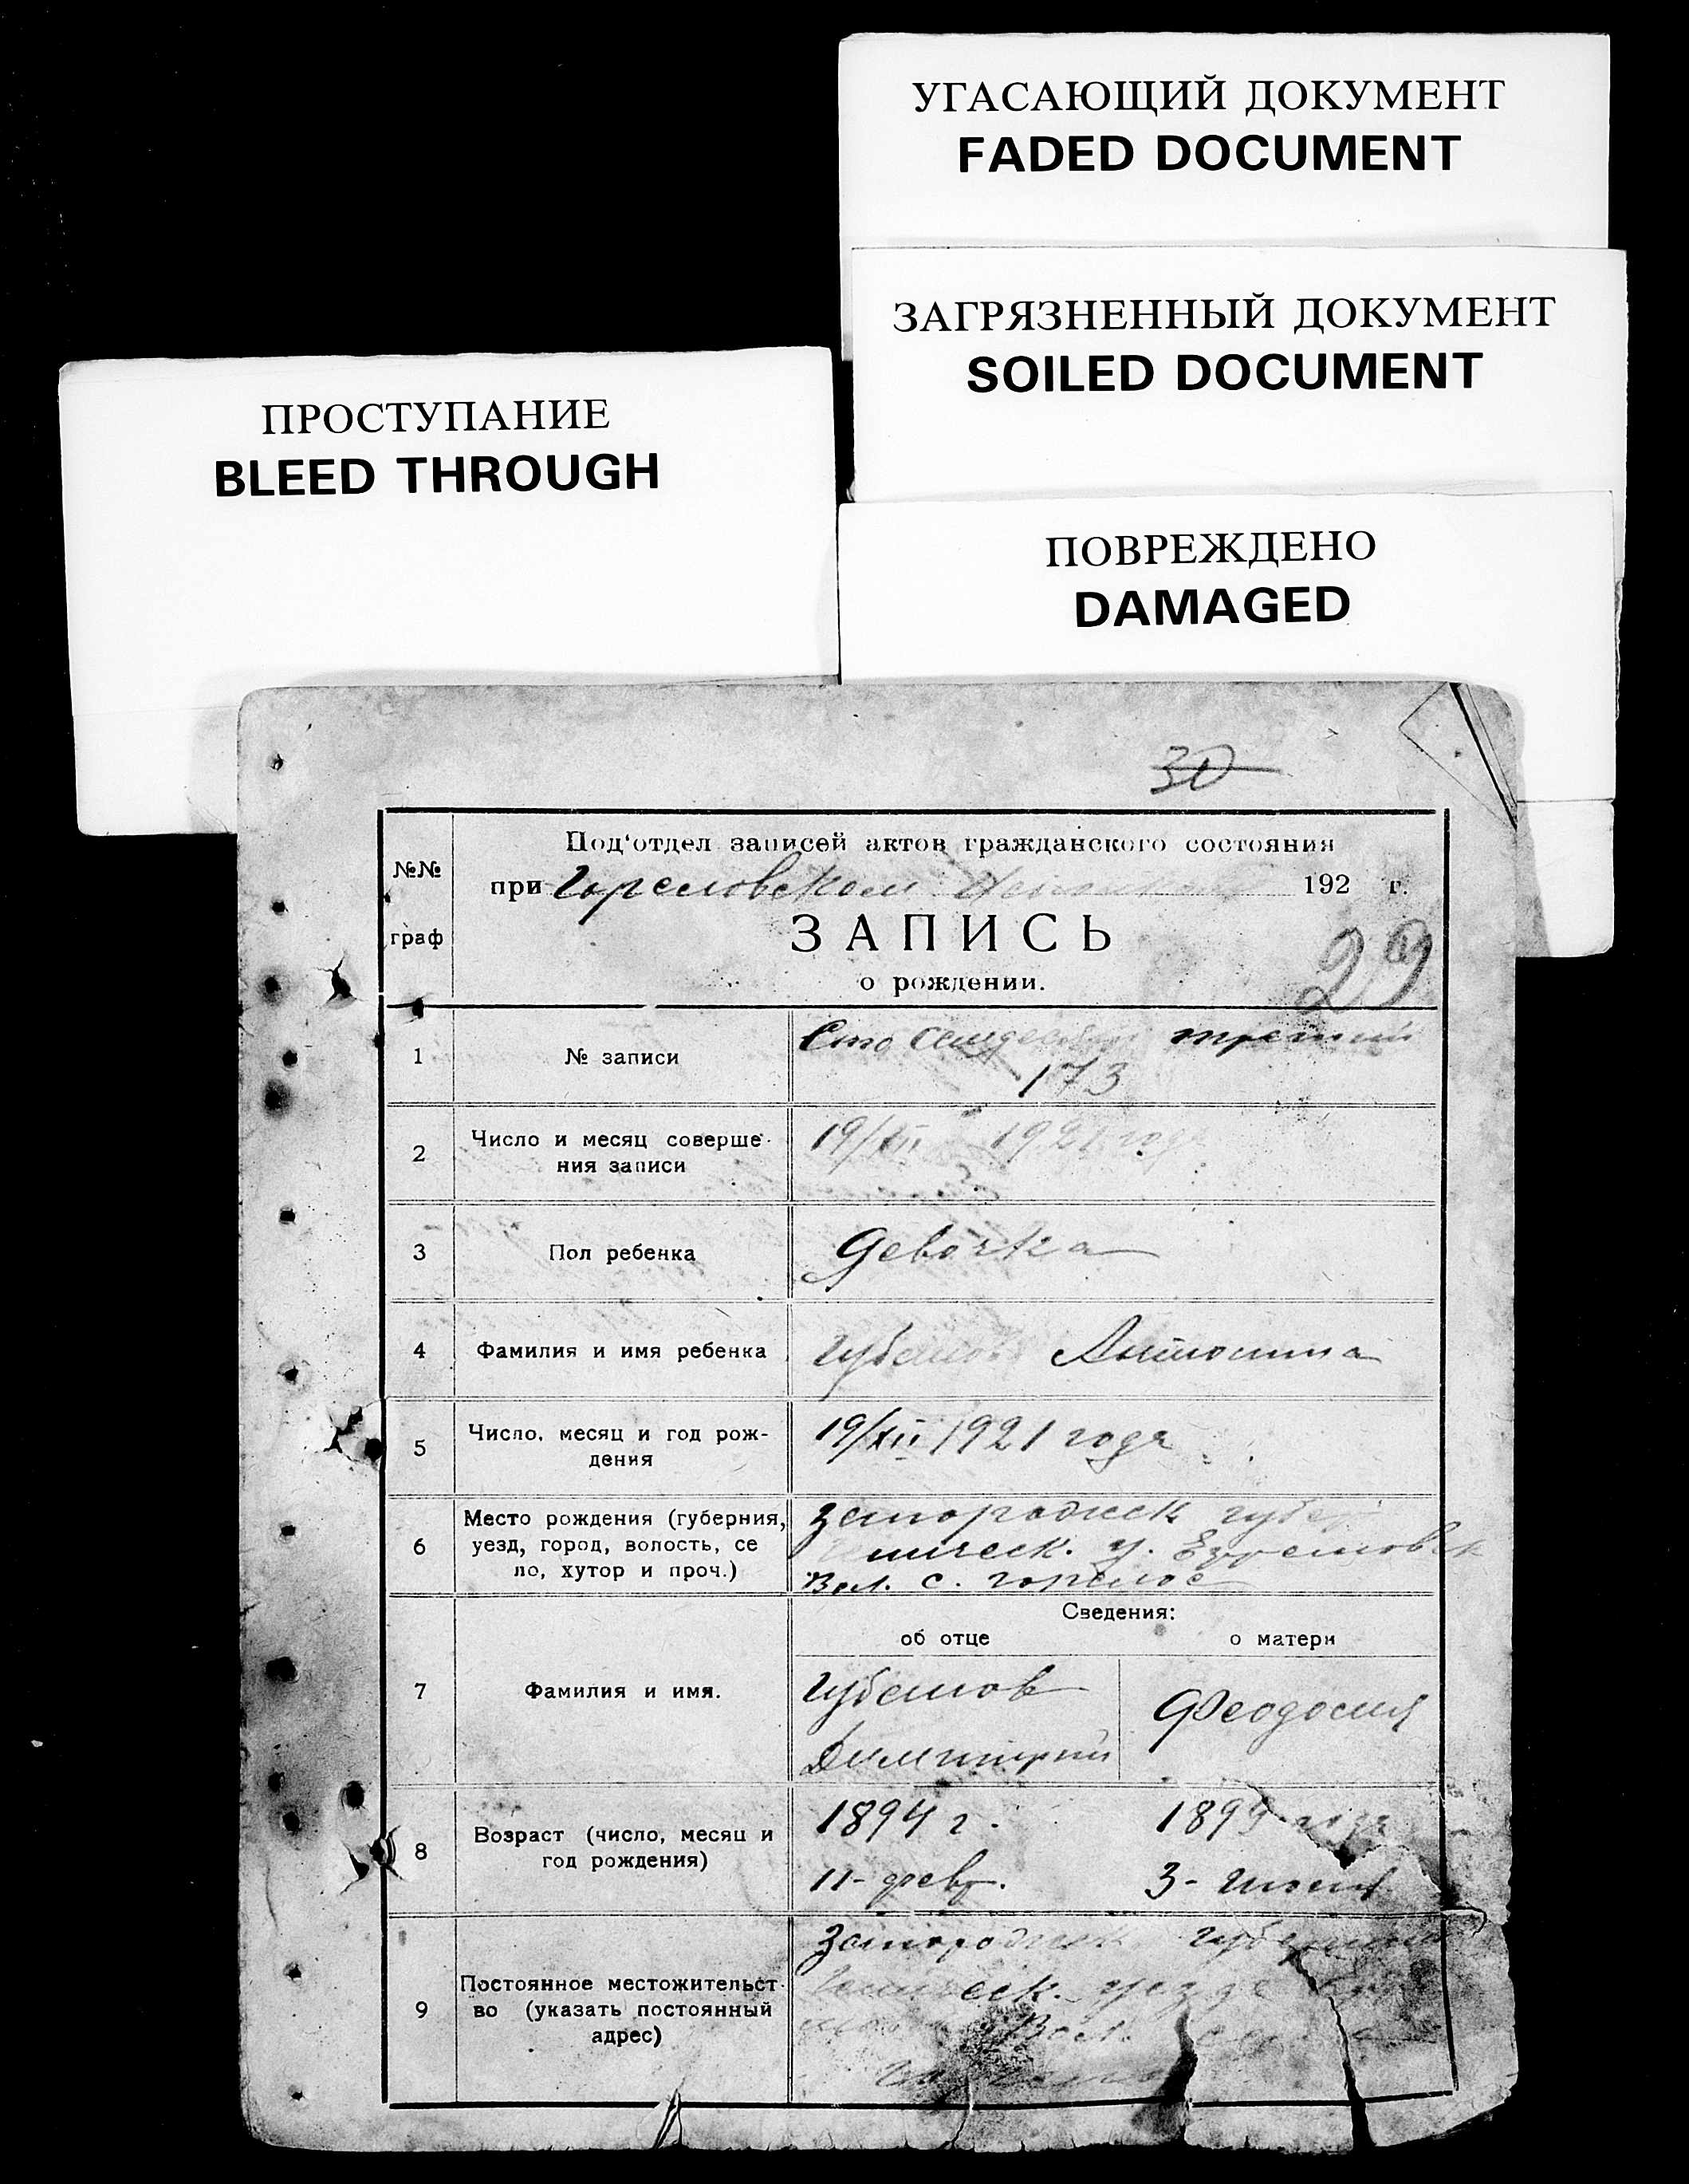 УГАСАЮЩИЙ ДОКУМЕНТ
FADED DOCUMENT
ЗАГРЯЗНЕННЫЙ ДОКУМЕНТ
SOILED DOCUMENT
ПРОСТУПАНИЕ
BLEED THROUGH
ПОВРЕЖДЕНО
DAMAGED
30
№№
граф
Под'отдел записей актов гражданского состояния
при Гореловском 192 г.
ЗАПИСЬ
29
о рождении.
1
№ записи
Сто семдесят третий
173
2
Число и месяц соверше-
ния записи
19/XII 1921 года
3
Пол ребенка
Девочка
4
Фамилия и имя ребенка
Антонина
5
Число, месяц и год рож-
дения
19/XII 1921 года
6
Место рождения (губерния,
уезд, город, волость, се
ло, хутор и проч.)
Запорожск губер
у.
Вол. с. горелое
Сведения:
об отце
о матери
7
Фамилия и имя.
Димитрий
Феодосия
8
Возраст (число, месяц и
год рождения)
1894 г.
11- февр.
1899 года
3-
9
Постоянное местожительст-
во (указать постоянный
адрес)
Вол.